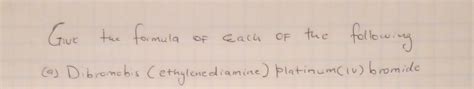 Give the formula of each of the following
(a) Dibromobis (ethylenediamine) platinum(iv) bromide